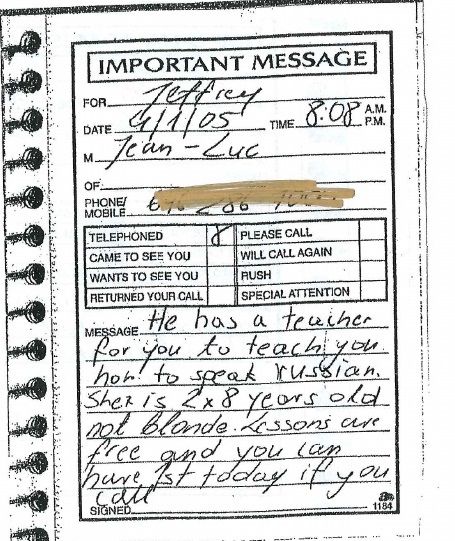 IMPORTANT MESSAGE
FOR Jeffrey
DATE 4/1/05 TIME 8:08 A.M. P.M.
M Jean-Luc
OF
PHONE/ MOBILE
TELEPHONED 8 PLEASE CALL
CAME TO SEE YOU WILL CALL AGAIN
WANTS TO SEE YOU RUSH
RETURNED YOUR CALL SPECIAL ATTENTION
MESSAGE He has a teacher
for you to teach you
how to speak russian.
She is 2x8 years old
not blonde. Lessons are
free and you can
have 1st today if you
call
SIGNED 1184